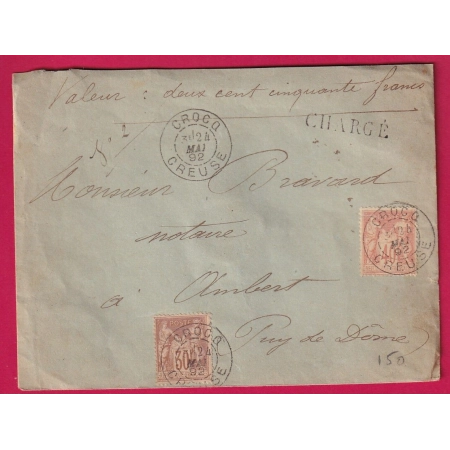 Valeur : deux cent cinquante francs
CROCQ
24
MAI
92
CREUSE
CHARGÉ
Monsieur Bravard
notaire
CROCQ
MAI
92
CREUSE
à Ambert
Puy de Dôme
CROCQ
24
MAI
92
CREUSE
150